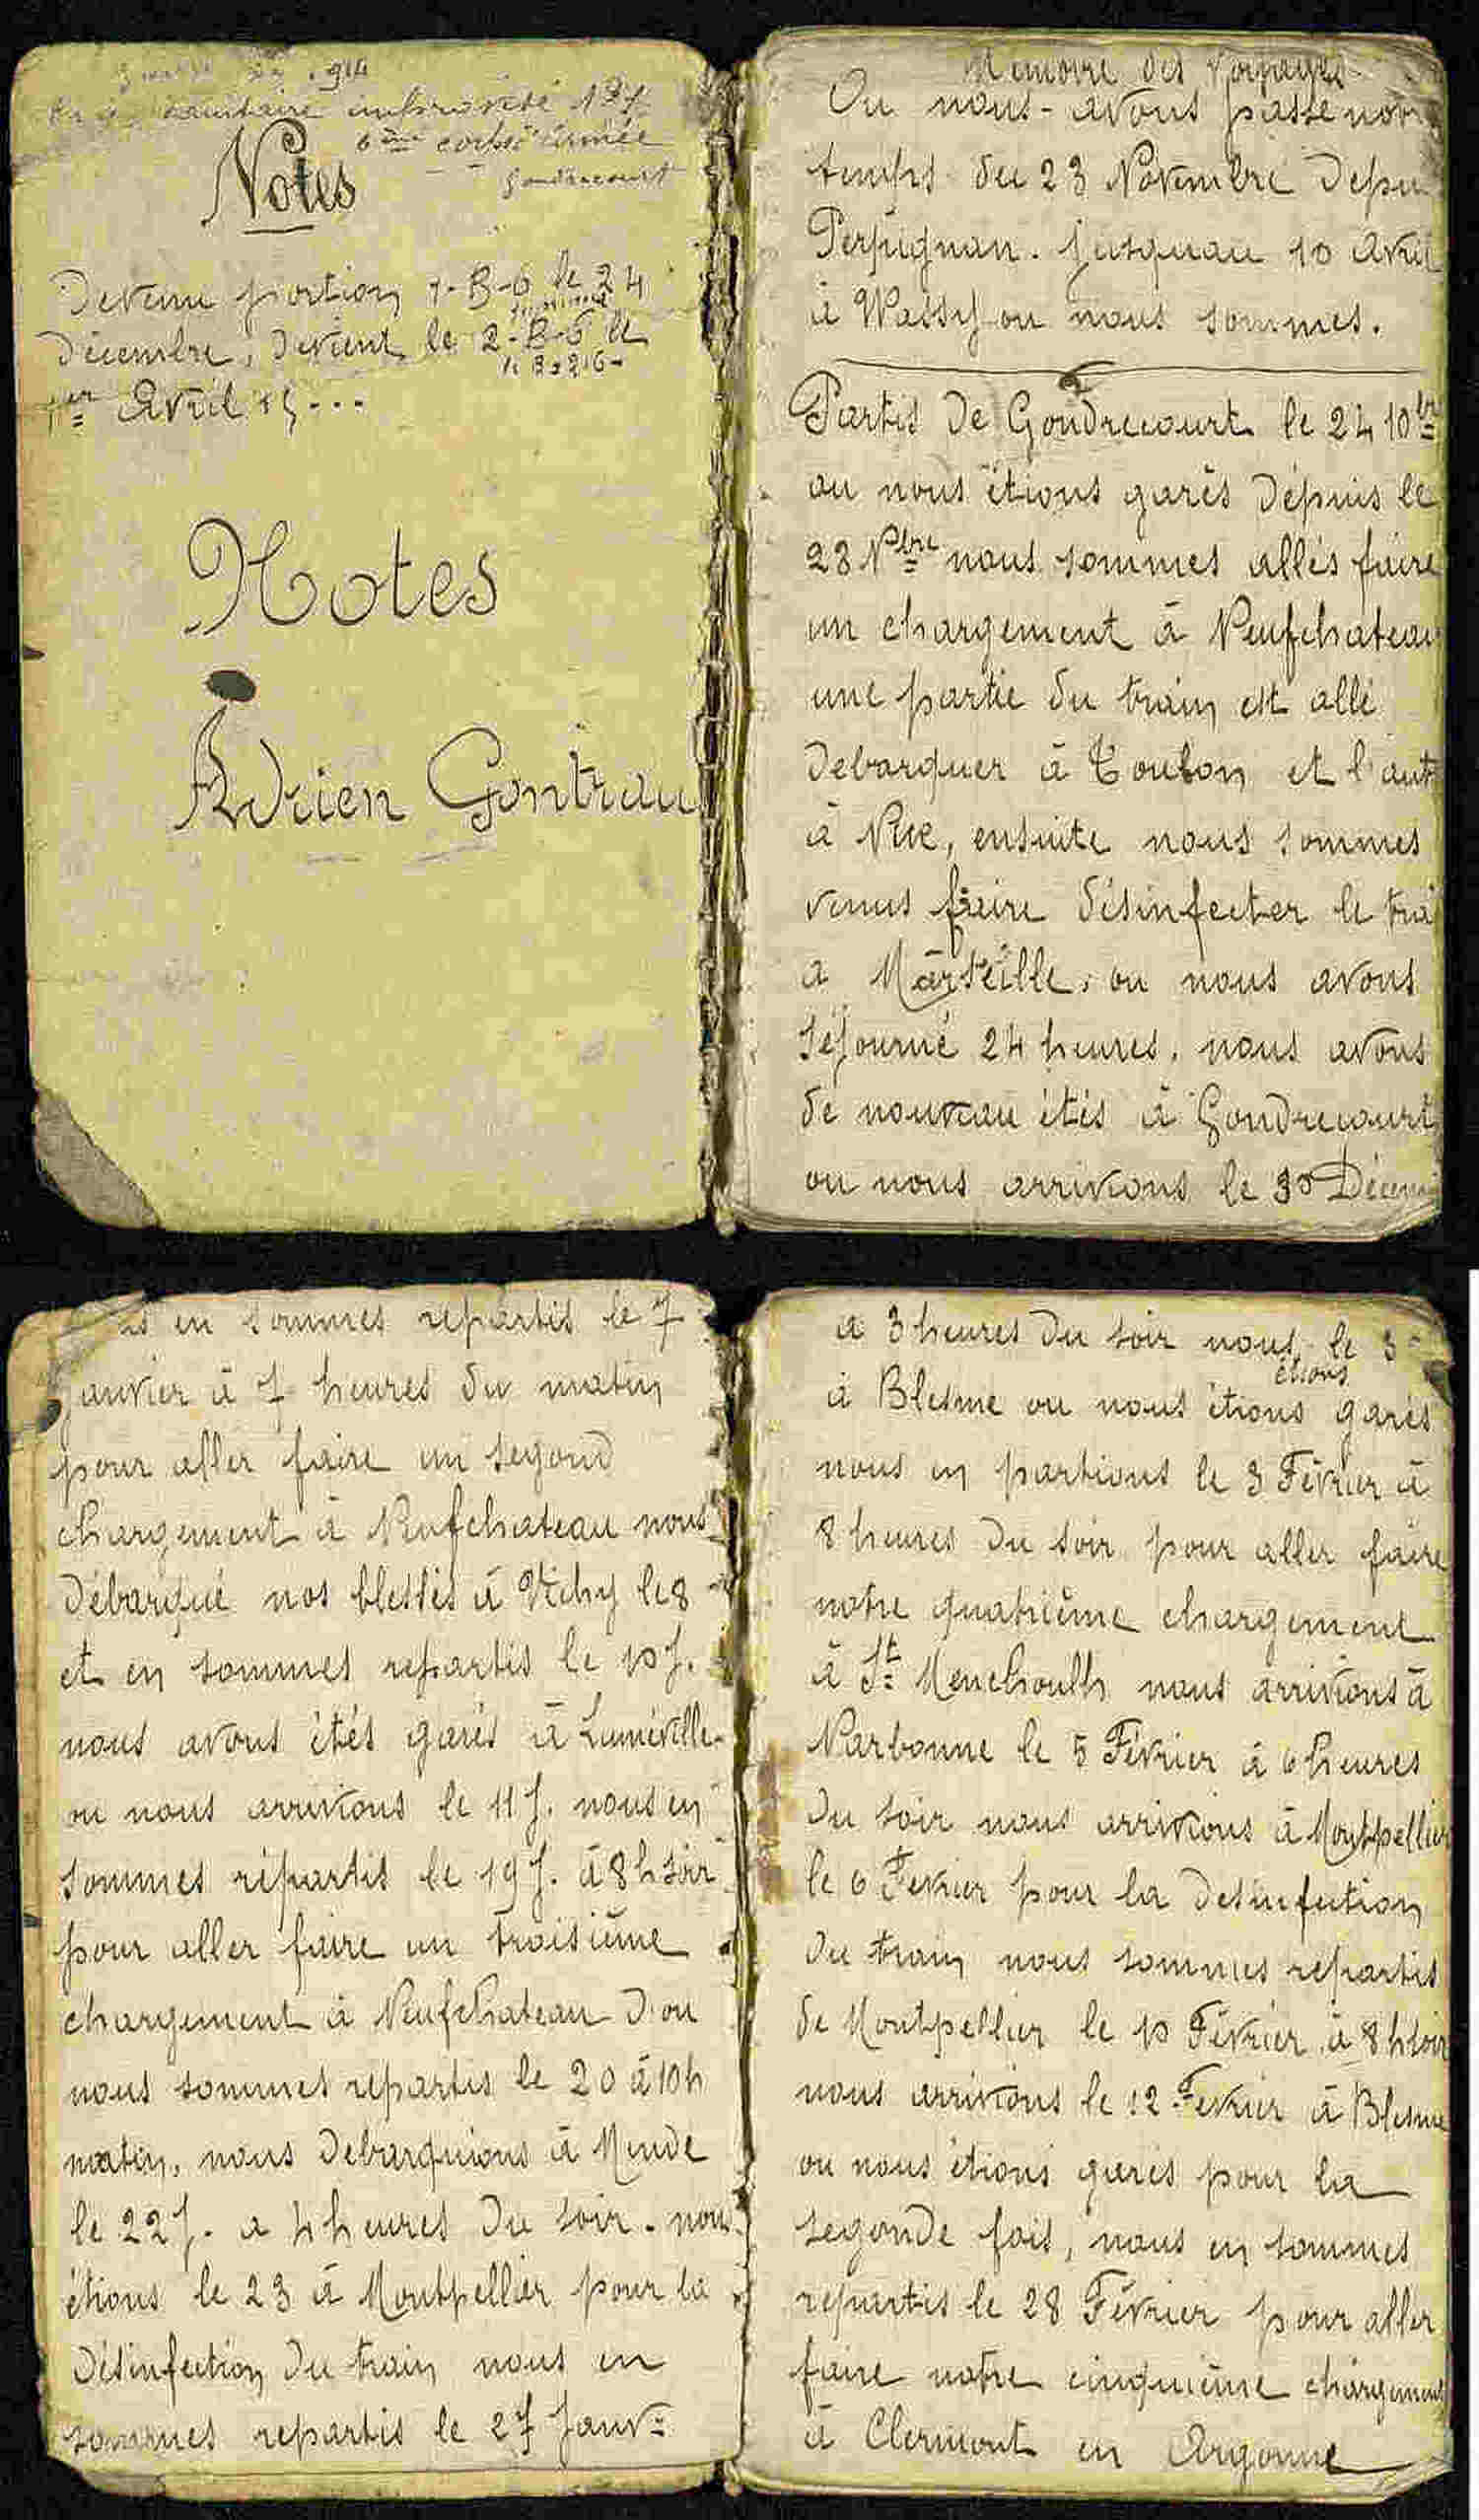 914
sanitaire improvisé
6ème corps d'armée
Gondrecourt
Notes
Devenu portion 1-B-6 le 24
Décembre, devient le 2-B-6 le
1er Avril 15...
Notes
Adrien Gontrau
Memoire des Voyages
Ou nous-avons passé
temps du 23 Novembre Depui
Perpignan. Jusquau 10 Avril
à Wassy ou nous sommes.
Partis De Gondrecourt le 24 10bre
ou nous étions garés Dépuis le
28 Nbre nous sommes allés faire
un chargement à Neufchateau
une partie du train est allé
debarquer à Toulon et l'aut
à Nice, ensuite nous sommes
venus faire désinfecter le trai
a Marseille, ou nous avons
séjourné 24 heures, nous avons
de nouveau étés à Gondrecourt
ou nous arrivions le 30 Décem
en sommes repartis le 7
Janvier à 7 heures du matin
pour aller faire un segond
chargement à Neufchateau nous
Débarqué nos blessés à Vichy le 8
et en sommes repartis le 10 J.
nous avons étés garés à Luméville
ou nous arrivions le 11 J. nous en
sommes répartis le 19 J. à 8 h soir
pour aller faire un troisième
chargement à Neufchateau D'ou
nous sommes repartis le 20 à 10h
matin, nous Debarquions à Mende
le 22 J. a 4 heures Du soir. nous
étions le 23 à Montpellier pour la
Désinfection Du train nous en
sommes repartis le 27 Janv:
a 3 heures Du soir nous étions le 3
à Blesme ou nous étions garés
nous en partions le 3 Février à
8 heures Du soir pour aller faire
notre quatrième chargement
à St Menehoulh nous arrivions à
Narbonne le 5 Février à 6 heures
Du soir nous arrivions à Montpellier
le 6 Fevrier pour la Desinfection
Du train nous sommes repartis
de Montpellier le 10 Février à 8 h soir
nous arrivions le 12 Fevrier à Blesme
ou nous étions garés pour la
segonde fois, nous en sommes
repartis le 28 Février pour aller
faire notre cinquième chargement
à Clermont en Argonne